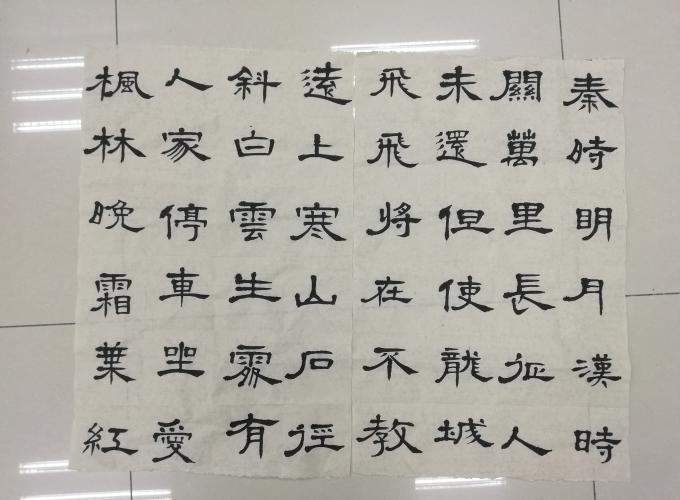 秦時明月漢時
關萬里長征人
未還但使龍城
飛飛將在不教
遠上寒山石徑
斜白雲生處有
人家停車坐愛
楓林晚霜葉紅